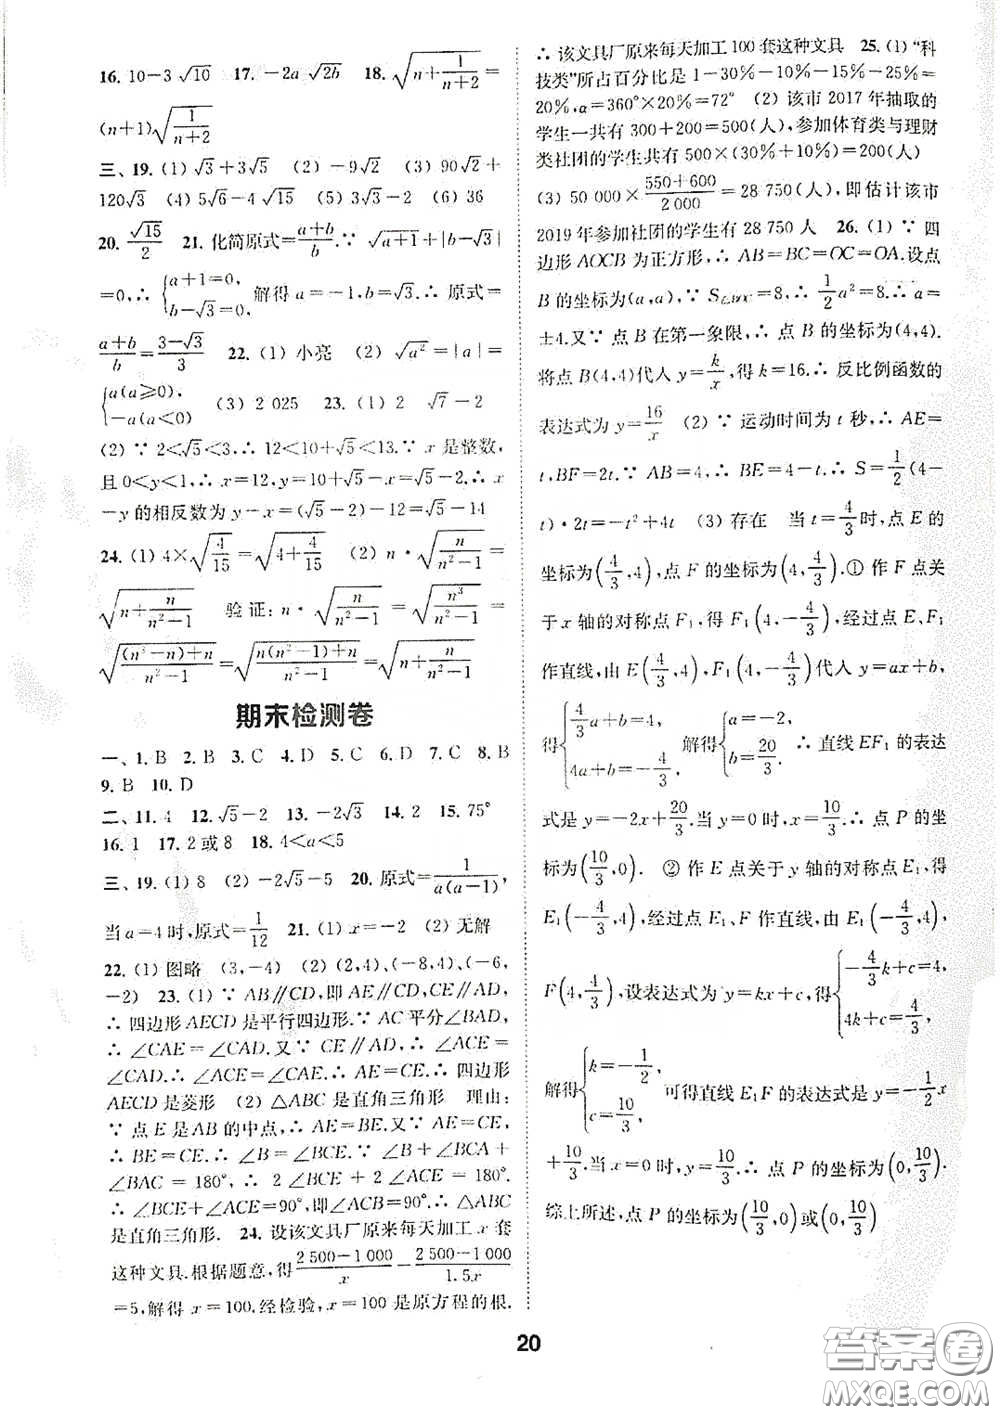 16. 10－3√10　17. －2a√2b　18. √(n＋1/(n＋2))＝
(n＋1)√(1/(n＋2))
三、19. (1) √3＋3√5　(2) －9√2　(3) 90√2＋
120√3　(4) 5√6－4√15　(5) 3√3－2　(6) 36
20. √15/2　21. 化简原式＝(a＋b)/b.∵ √(a＋1)＋|b－√3|
＝0,∴ {a＋1＝0, b－√3＝0, 解得 a＝－1,b＝√3.∴ 原式＝
(a＋b)/b＝(3－√3)/3　22. (1) 小亮　(2) √a²＝|a|＝
{a(a≥0), －a(a＜0)　(3) 2 025　23. (1) 2　√7－2
(2) ∵ 2＜√5＜3,∴ 12＜10＋√5＜13.∵ x 是整数,
且 0＜y＜1,∴ x＝12,y＝10＋√5－x＝√5－2.∴ x
－y 的相反数为 y－x＝(√5－2)－12＝√5－14
24. (1) 4×√(4/15)＝√(4＋4/15)　(2) n·√(n/(n²－1))＝
√(n＋n/(n²－1))　验证: n·√(n/(n²－1))＝√(n³/(n²－1))＝
√(((n³－n)＋n)/(n²－1))＝√((n(n²－1)＋n)/(n²－1))＝√(n＋n/(n²－1))
期末检测卷
一、1. B　2. B　3. C　4. D　5. C　6. D　7. C　8. B
9. B　10. D
二、11. 4　12. √5－2　13. －2√3　14. 2　15. 75°
16. 1　17. 2 或 8　18. 4＜a＜5
三、19. (1) 8　(2) －2√5－5　20. 原式＝1/(a(a－1)),
当 a＝4 时,原式＝1/12　21. (1) x＝－2　(2) 无解
22. (1) 图略　(3,－4)　(2) (2,4)、(－8,4)、(－6,
－2)　23. (1) ∵ AB∥CD,即 AE∥CD,CE∥AD,
∴ 四边形 AECD 是平行四边形.∵ AC 平分∠BAD,
∴ ∠CAE＝∠CAD.又∵ CE∥AD,∴ ∠ACE＝
∠CAD.∴ ∠ACE＝∠CAE.∴ AE＝CE.∴ 四边形
AECD 是菱形　(2) △ABC 是直角三角形　理由:
∵ 点 E 是 AB 的中点,∴ AE＝BE.又∵ AE＝CE,
∴ BE＝CE.∴ ∠B＝∠BCE.∵ ∠B＋∠BCA＋
∠BAC＝180°,∴ 2∠BCE＋2∠ACE＝180°.
∴ ∠BCE＋∠ACE＝90°,即∠ACB＝90°.∴ △ABC
是直角三角形.　24. 设该文具厂原来每天加工 x 套
这种文具.根据题意,得(2 500－1 000)/x－(2 500－1 000)/1.5x
＝5,解得 x＝100.经检验,x＝100 是原方程的根.
∴ 该文具厂原来每天加工 100 套这种文具　25. (1) “科
技类”所占百分比是 1－30%－10%－15%－25%＝
20%,α＝360°×20%＝72°　(2) 该市 2017 年抽取的
学生一共有 300＋200＝500(人),参加体育类与理财
类社团的学生共有 500×(30%＋10%)＝200(人)
(3) 50 000×(550＋600)/2 000＝28 750(人),即估计该市
2019 年参加社团的学生有 28 750 人　26. (1) ∵ 四
边形 AOCB 为正方形,∴ AB＝BC＝OC＝OA.设点
B 的坐标为(a,a),∵ S＝8,∴ 1/2a²＝8.∴ a＝
±4.又∵ 点 B 在第一象限,∴ 点 B 的坐标为(4,4).
将点 B(4,4)代人 y＝k/x,得 k＝16.∴ 反比例函数的
表达式为 y＝16/x　(2) ∵ 运动时间为 t 秒,∴ AE＝
t,BF＝2t.∵ AB＝4,∴ BE＝4－t.∴ S＝1/2(4－
t)·2t＝－t²＋4t　(3) 存在　当 t＝4/3时,点 E 的
坐标为(4/3,4),点 F 的坐标为(4,4/3).① 作 F 点关
于 x 轴的对称点 F₁,得 F₁(4,－4/3),经过点 E、F₁
作直线,由 E(4/3,4),F₁(4,－4/3)代人 y＝ax＋b,
得{4/3a＋b＝4, 4a＋b＝－4/3, 解得{a＝－2, b＝20/3. ∴ 直线 EF₁ 的表达
式是 y＝－2x＋20/3.当 y＝0 时,x＝10/3.∴ 点 P 的坐
标为(10/3,0).　② 作 E 点关于 y 轴的对称点 E₁,得
E₁(－4/3,4),经过点 E₁、F 作直线,由 E₁(－4/3,4),
F(4,4/3),设表达式为 y＝kx＋c,得{－4/3k＋c＝4, 4k＋c＝4/3,
解得{k＝－1/2, c＝10/3, 可得直线 E₁F 的表达式是 y＝－1/2x
＋10/3.当 x＝0 时,y＝10/3.∴ 点 P 的坐标为(0,10/3).
综上所述,点 P 的坐标为(10/3,0)或(0,10/3)
20
答案圈
MXQE.COM